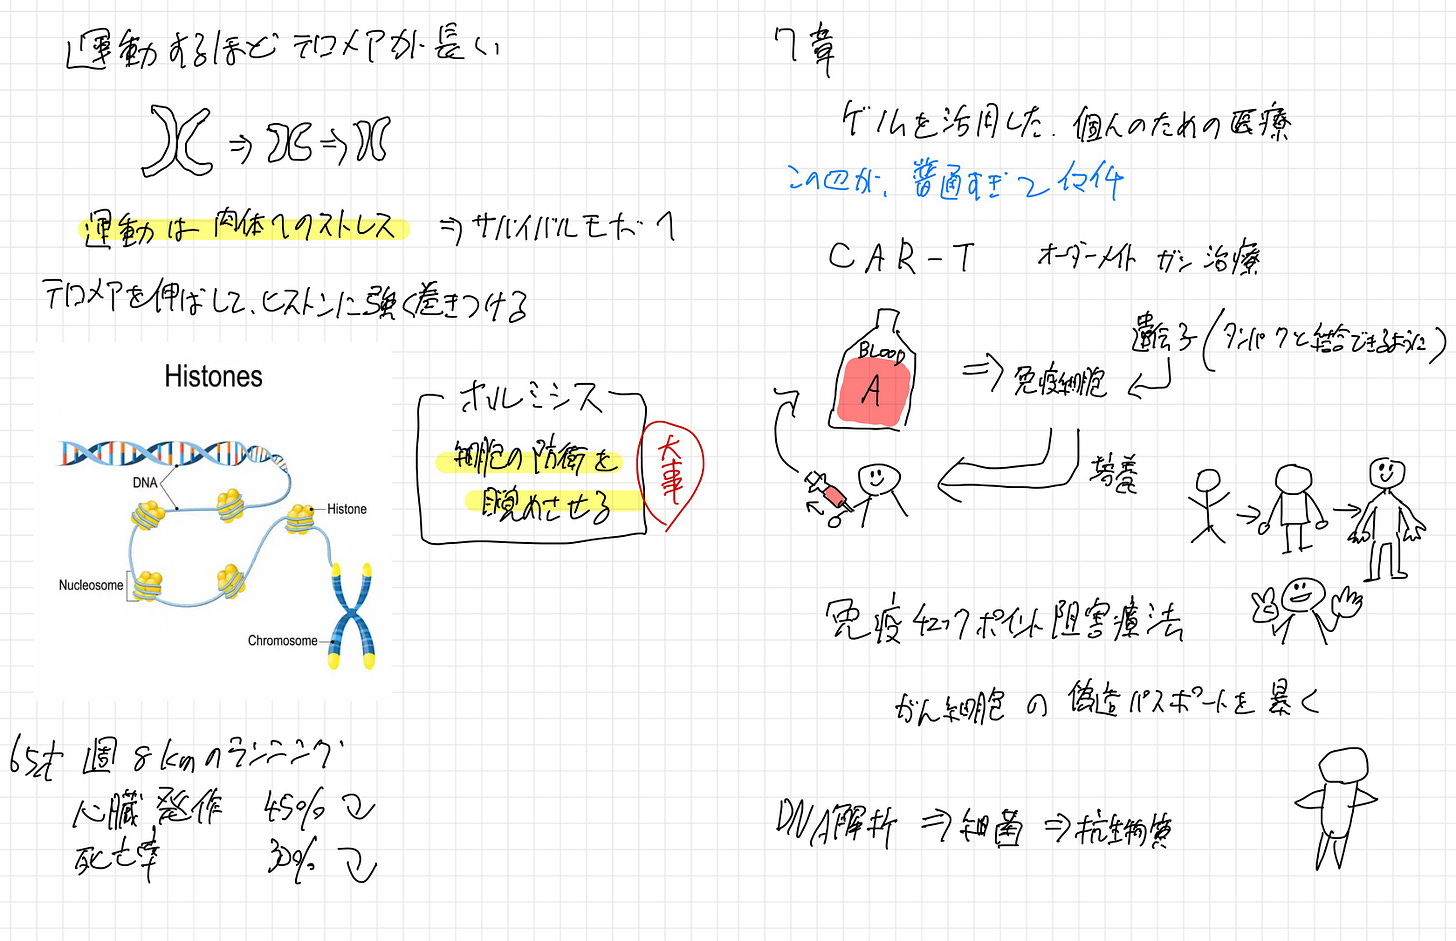 運動するほど テロメアが長い
運動は 肉体へのストレス ⇒ サバイバルモードへ
テロメアを伸ばして、ヒストンに強く巻きつける
Histones
DNA
Histone
Nucleosome
Chromosome
ホルミシス
細胞の防衛を
目覚めさせる
大事
65才 週8kmのランニング
心臓発作 45%
死亡率 30%
7章
ゲノムを活用した、個人のための医療
この辺が、普通すぎて
CAR-T オーダーメイト ガン治療
BLOOD
A
⇒ 免疫細胞
遺伝子(タンパクと結合できるように)
培養
免疫チェックポイント阻害療法
がん細胞 の 偽造パスポートを暴く
DNA解析 ⇒ 細菌 ⇒ 抗生物質